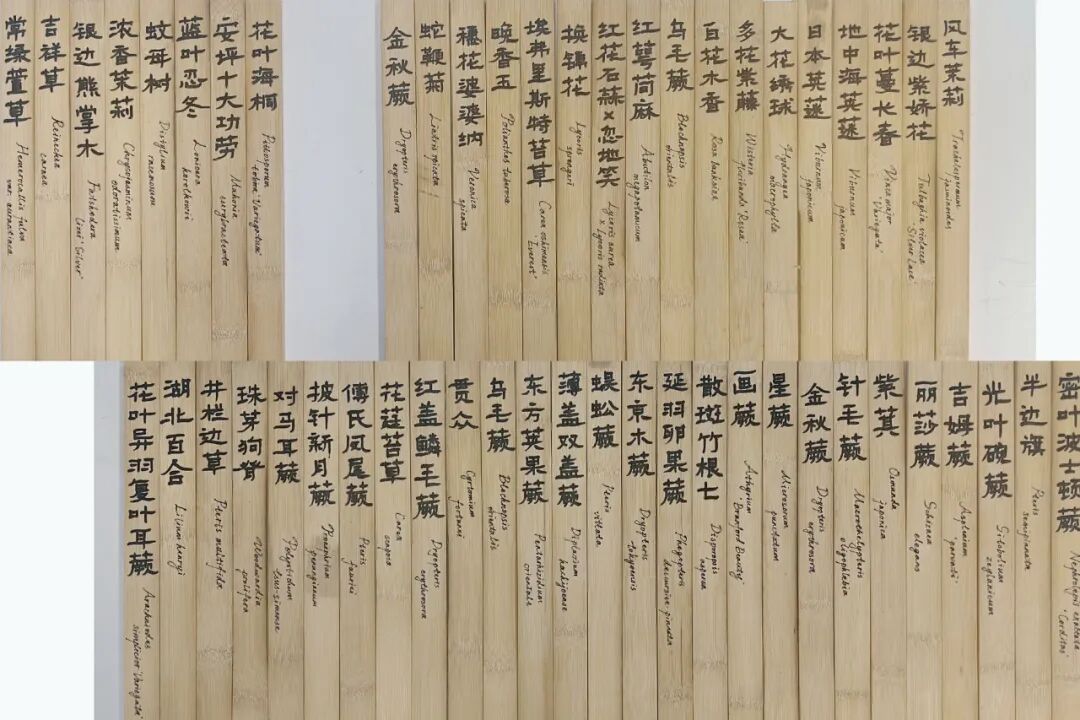 常绿萱草
Hemerocallis fulva
var. aurantiaca
吉祥草
Reineckia
carnea
银边熊掌木
Fatshedera
lizei 'Silver'
浓香茉莉
Chrysojasminum
odoratissimum
蚊母树
Distylium
racemosum
蓝叶忍冬
Lonicera
korolkowii
安坪十大功劳
Mahonia
eurybracteata
花叶海桐
Pittosporum
tobira 'Variegatum'
金秋蕨
Drypteris
erythrosora
蛇鞭菊
Liatris spicata
穗花婆婆纳
Veronica
spicata
晚香玉
Polianthes tuberosa
埃弗里斯特苔草
Carex oshimensis
'Everest'
换锦花
Lycoris
sprengeri
红花石蒜×忽地笑
Lycoris aurea
x Lycoris radiata
红萼苘麻
Abutilon
megapotamicum
乌毛蕨
Blechnopsis
orientalis
百花木香
Rosa banksiae
多花紫藤
Wisteria
floribunda 'Rosea'
大花绣球
Hydrangea
macrophylla
日本荚蒾
Viburnum
japonicum
地中海荚蒾
Viburnum
japonicum
花叶蔓长春
Vinca major
'Variegata'
银边紫娇花
Tulbaghia violacea
'Silver Lace'
风车茉莉
Trachelospermum
jasminoides
花叶异羽复叶耳蕨
Arachniodes
simplicior 'Variegata'
湖北百合
Lilium henryi
井栏边草
Pteris multifida
珠芽狗脊
Woodwardia
prolifera
对马耳蕨
Polystichum
tsus-simense
披针新月蕨
Pronephrium
penangianum
傅氏凤尾蕨
Pteris
fauriei
花莛苔草
Carex
scaposa
红盖鳞毛蕨
Drypteris
erythrosora
贯众
Cyrtomium
fortunei
乌毛蕨
Blechnopsis
orientalis
东方荚果蕨
Pentarhizidium
orientale
薄盖双盖蕨
Diplazium
hachijoense
蜈蚣蕨
Pteris
vittata
东京木蕨
Dryopteris
tokyoensis
延羽卵果蕨
Phegopteris
decursive-pinnata
散斑竹根七
Disporopsis
aspersa
画蕨
Athyrium
'Branford Beauty'
星蕨
Microsorum
punctatum
金秋蕨
Drypteris
erythrosora
针毛蕨
Macrothelypteris
oligophlebia
紫萁
Osmunda
japonica
丽莎蕨
Schizaea
elegans
吉姆蕨
Asplenium
'parvati'
光叶碗蕨
Sitobolium
zeylanicum
半边旗
Pteris
semipinnata
密叶波士顿蕨
Nephrolepis exaltata
'Corditas'